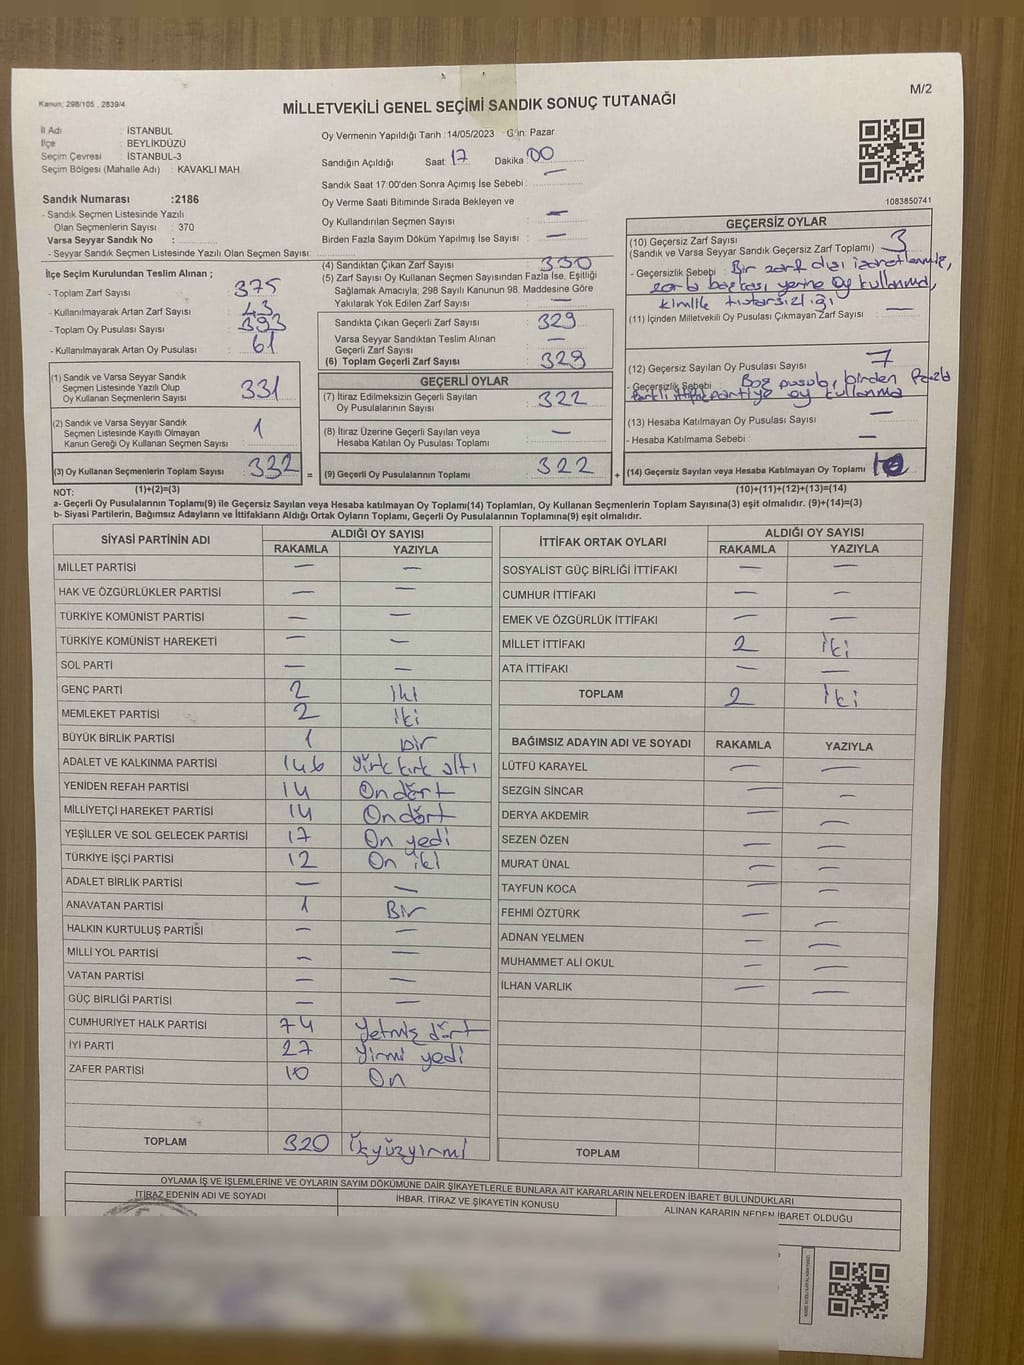 M/2
Kanun; 298/105 , 2839/4
MİLLETVEKİLİ GENEL SEÇİMİ SANDIK SONUÇ TUTANAĞI
İl Adı : İSTANBUL
İlçe : BEYLİKDÜZÜ
Seçim Çevresi : İSTANBUL-3
Seçim Bölgesi (Mahalle Adı) : KAVAKLI MAH.
Sandık Numarası :2186
- Sandık Seçmen Listesinde Yazılı
Olan Seçmenlerin Sayısı : 370
Varsa Seyyar Sandık No :
- Seyyar Sandık Seçmen Listesinde Yazılı Olan Seçmen Sayısı:
Oy Vermenin Yapıldığı Tarih :14/05/2023 Gün: Pazar
Sandığın Açıldığı Saat: 17 Dakika: 00
Sandık Saat 17:00'den Sonra Açımış İse Sebebi : —
Oy Verme Saati Bitiminde Sırada Bekleyen ve
Oy Kullandırılan Seçmen Sayısı : —
Birden Fazla Sayım Döküm Yapılmış İse Sayısı : —
1083850741
İlçe Seçim Kurulundan Teslim Alınan ;
- Toplam Zarf Sayısı : 375
- Kullanılmayarak Artan Zarf Sayısı : 43
- Toplam Oy Pusulası Sayısı : 393
- Kullanılmayarak Artan Oy Pusulası : 61
(1) Sandık ve Varsa Seyyar Sandık
Seçmen Listesinde Yazılı Olup
Oy Kullanan Seçmenlerin Sayısı : 331
(2) Sandık ve Varsa Seyyar Sandık
Seçmen Listesinde Kayıtlı Olmayan
Kanun Gereği Oy Kullanan Seçmen Sayısı : 1
(3) Oy Kullanan Seçmenlerin Toplam Sayısı : 332 =
(4) Sandıktan Çıkan Zarf Sayısı : 330
(5) Zarf Sayısı Oy Kullanan Seçmen Sayısından Fazla İse, Eşitliği
Sağlamak Amacıyla; 298 Sayılı Kanunun 98. Maddesine Göre
Yakılarak Yok Edilen Zarf Sayısı : —
Sandıkta Çıkan Geçerli Zarf Sayısı : 329
Varsa Seyyar Sandıktan Teslim Alınan
Geçerli Zarf Sayısı : —
(6) Toplam Geçerli Zarf Sayısı : 329
GEÇERLİ OYLAR
(7) İtiraz Edilmeksizin Geçerli Sayılan
Oy Pusulalarının Sayısı : 322
(8) İtiraz Üzerine Geçerli Sayılan veya
Hesaba Katılan Oy Pusulası Toplamı : —
(9) Geçerli Oy Pusulalarının Toplamı : 322 +
GEÇERSİZ OYLAR
(10) Geçersiz Zarf Sayısı
(Sandık ve Varsa Seyyar Sandık Geçersiz Zarf Toplamı) : 3
- Geçersizlik Sebebi : Bir zarf dışı işaretlenmiş,
başkası yerine oy kullanma,
kimlik tutarsızlığı
(11) İçinden Milletvekili Oy Pusulası Çıkmayan Zarf Sayısı : —
(12) Geçersiz Sayılan Oy Pusulası Sayısı : 7
- Geçersizlik Sebebi : Boş pusula, birden fazla
farklı partiye oy kullanma
(13) Hesaba Katılmayan Oy Pusulası Sayısı : —
- Hesaba Katılmama Sebebi : —
(14) Geçersiz Sayılan veya Hesaba Katılmayan Oy Toplamı : 10
NOT: (1)+(2)=(3)
(10)+(11)+(12)+(13)=(14)
a- Geçerli Oy Pusulalarının Toplamı(9) ile Geçersiz Sayılan veya Hesaba katılmayan Oy Toplamı(14) Toplamları, Oy Kullanan Seçmenlerin Toplam Sayısına(3) eşit olmalıdır. (9)+(14)=(3)
b- Siyasi Partilerin, Bağımsız Adayların ve İttifakların Aldığı Ortak Oyların Toplamı, Geçerli Oy Pusulalarının Toplamına(9) eşit olmalıdır.
SİYASİ PARTİNİN ADI ALDIĞI OY SAYISI
RAKAMLA YAZIYLA
MİLLET PARTİSİ — —
HAK VE ÖZGÜRLÜKLER PARTİSİ — —
TÜRKİYE KOMÜNİST PARTİSİ — —
TÜRKİYE KOMÜNİST HAREKETİ — —
SOL PARTİ — —
GENÇ PARTİ 2 iki
MEMLEKET PARTİSİ 2 iki
BÜYÜK BİRLİK PARTİSİ 1 bir
ADALET VE KALKINMA PARTİSİ 146 kırk altı
YENİDEN REFAH PARTİSİ 14 On dört
MİLLİYETÇİ HAREKET PARTİSİ 14 On dört
YEŞİLLER VE SOL GELECEK PARTİSİ 17 On yedi
TÜRKİYE İŞÇİ PARTİSİ 12 On iki
ADALET BİRLİK PARTİSİ — —
ANAVATAN PARTİSİ 1 Bir
HALKIN KURTULUŞ PARTİSİ — —
MİLLİ YOL PARTİSİ — —
VATAN PARTİSİ — —
GÜÇ BİRLİĞİ PARTİSİ — —
CUMHURİYET HALK PARTİSİ 74 Yetmiş dört
İYİ PARTİ 27 Yirmi yedi
ZAFER PARTİSİ 10 On
TOPLAM 320 İkyüzyirmi
İTTİFAK ORTAK OYLARI ALDIĞI OY SAYISI
RAKAMLA YAZIYLA
SOSYALİST GÜÇ BİRLİĞİ İTTİFAKI — —
CUMHUR İTTİFAKI — —
EMEK VE ÖZGÜRLÜK İTTİFAKI — —
MİLLET İTTİFAKI 2 İki
ATA İTTİFAKI — —
TOPLAM 2 İki
BAĞIMSIZ ADAYIN ADI VE SOYADI RAKAMLA YAZIYLA
LÜTFÜ KARAYEL — —
SEZGİN SİNCAR — —
DERYA AKDEMİR — —
SEZEN ÖZEN — —
MURAT ÜNAL — —
TAYFUN KOCA — —
FEHMİ ÖZTÜRK — —
ADNAN YELMEN — —
MUHAMMET ALİ OKUL — —
İLHAN VARLIK — —
TOPLAM
OYLAMA İŞ VE İŞLEMLERİNE VE OYLARIN SAYIM DÖKÜMÜNE DAİR ŞİKAYETLERLE BUNLARA AİT KARARLARIN NELERDEN İBARET BULUNDUKLARI
İTİRAZ EDENİN ADI VE SOYADI İHBAR, İTİRAZ VE ŞİKAYETİN KONUSU ALINAN KARARIN NEDEN İBARET OLDUĞU